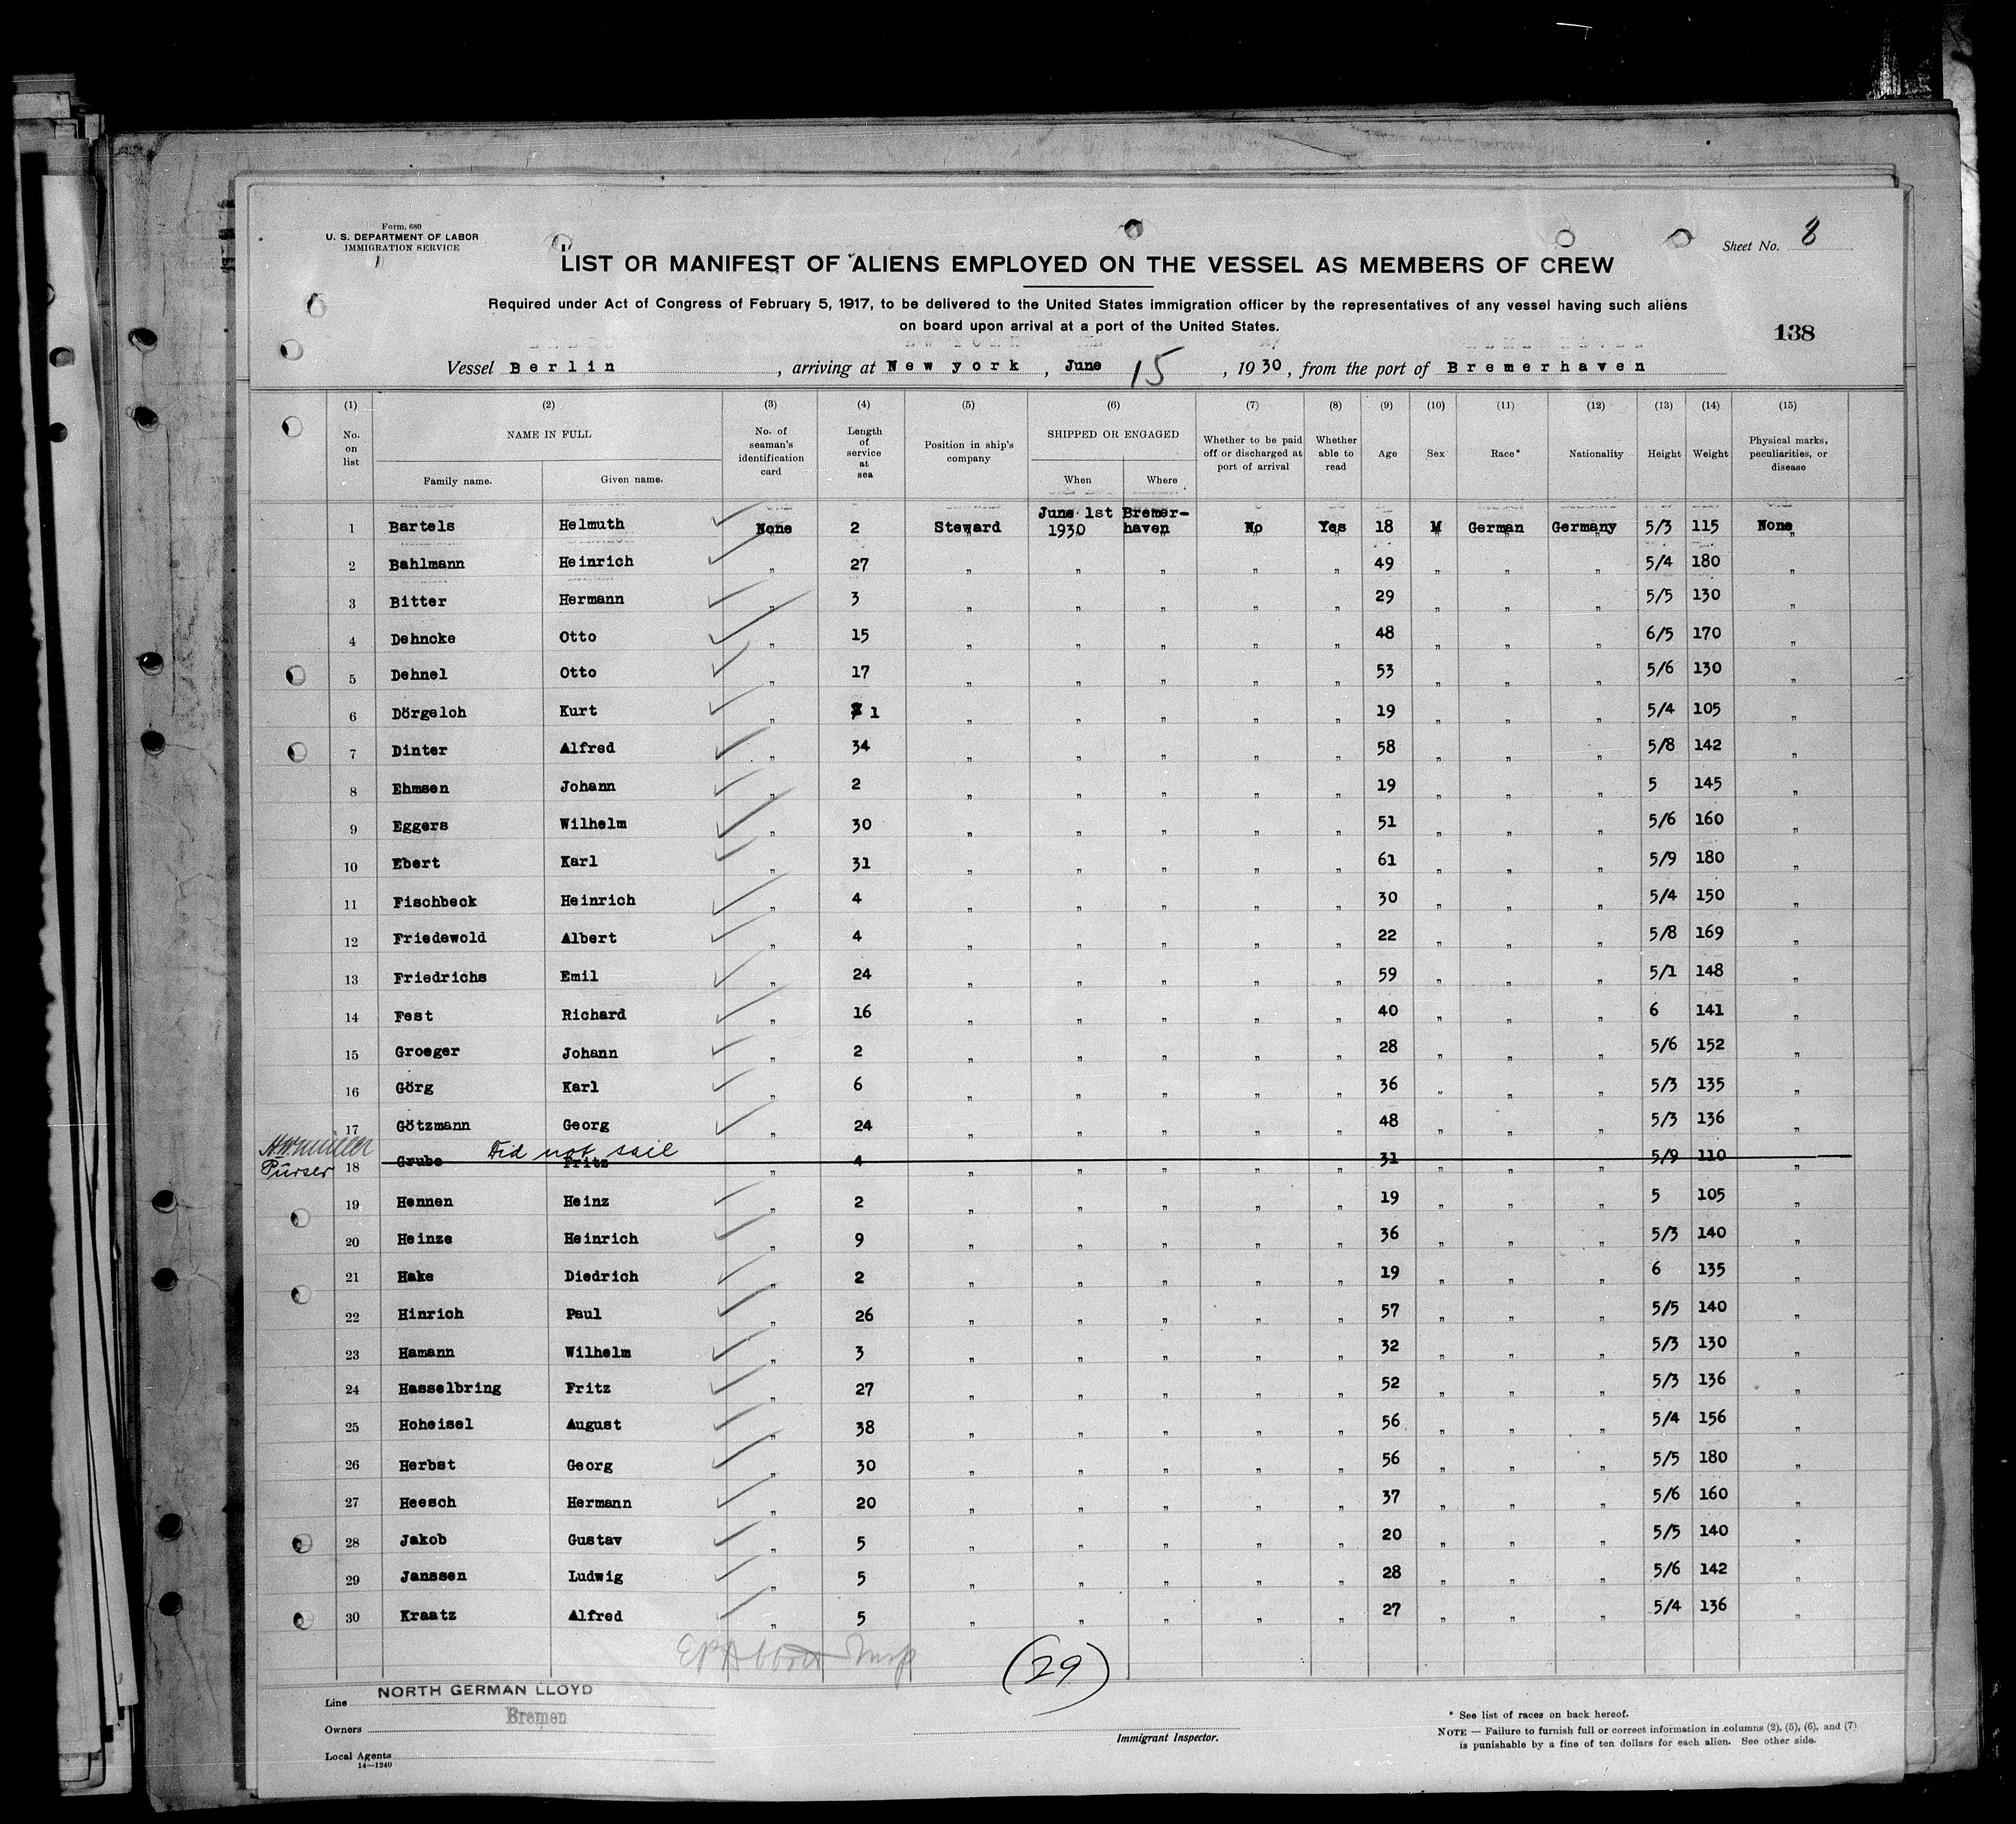 Form. 680
U. S. DEPARTMENT OF LABOR
IMMIGRATION SERVICE
Sheet No. 8
LIST OR MANIFEST OF ALIENS EMPLOYED ON THE VESSEL AS MEMBERS OF CREW
Required under Act of Congress of February 5, 1917, to be delivered to the United States immigration officer by the representatives of any vessel having such aliens
on board upon arrival at a port of the United States.
138
Vessel Berlin , arriving at New york , June 15 , 1930 , from the port of Bremerhaven
(1) (2) (3) (4) (5) (6) (7) (8) (9) (10) (11) (12) (13) (14) (15)
No. on list NAME IN FULL Family name. Given name. No. of seaman's identification card Length of service at sea Position in ship's company SHIPPED OR ENGAGED When Where Whether to be paid off or discharged at port of arrival Whether able to read Age Sex Race* Nationality Height Weight Physical marks, peculiarities, or disease
1 Bartels Helmuth None 2 Steward June 1st 1930 Bremer-haven No Yes 18 M German Germany 5/3 115 None
2 Bahlmann Heinrich " 27 " " " " " 49 " " " 5/4 180 "
3 Bitter Hermann " 3 " " " " " 29 " " " 5/5 130 "
4 Dehncke Otto " 15 " " " " " 48 " " " 6/5 170 "
5 Dehnel Otto " 17 " " " " " 53 " " " 5/6 130 "
6 Dörgeloh Kurt " 1 " " " " " 19 " " " 5/4 105 "
7 Dinter Alfred " 34 " " " " " 58 " " " 5/8 142 "
8 Ehmsen Johann " 2 " " " " " 19 " " " 5 145 "
9 Eggers Wilhelm " 30 " " " " " 51 " " " 5/6 160 "
10 Ebert Karl " 31 " " " " " 61 " " " 5/9 180 "
11 Fischbeck Heinrich " 4 " " " " " 30 " " " 5/4 150 "
12 Friedewold Albert " 4 " " " " " 22 " " " 5/8 169 "
13 Friedrichs Emil " 24 " " " " " 59 " " " 5/1 148 "
14 Fest Richard " 16 " " " " " 40 " " " 6 141 "
15 Groeger Johann " 2 " " " " " 28 " " " 5/6 152 "
16 Görg Karl " 6 " " " " " 36 " " " 5/3 135 "
17 Götzmann Georg " 24 " " " " " 48 " " " 5/3 136 "
Did not sail
Purser 18 Grube Fritz " 4 " " " " " 31 " " " 5/9 110 "
19 Hennen Heinz " 2 " " " " " 19 " " " 5 105 "
20 Heinze Heinrich " 9 " " " " " 36 " " " 5/3 140 "
21 Hake Diedrich " 2 " " " " " 19 " " " 6 135 "
22 Hinrich Paul " 26 " " " " " 57 " " " 5/5 140 "
23 Hamann Wilhelm " 3 " " " " " 32 " " " 5/3 130 "
24 Hasselbring Fritz " 27 " " " " " 52 " " " 5/3 136 "
25 Hoheisel August " 38 " " " " " 56 " " " 5/4 156 "
26 Herbst Georg " 30 " " " " " 56 " " " 5/5 180 "
27 Heesch Hermann " 20 " " " " " 37 " " " 5/6 160 "
28 Jakob Gustav " 5 " " " " " 20 " " " 5/5 140 "
29 Janssen Ludwig " 5 " " " " " 28 " " " 5/6 142 "
30 Kraatz Alfred " 5 " " " " " 27 " " " 5/4 136 "
(29)
Line NORTH GERMAN LLOYD
Owners Bremen
Local Agents
14—1240
Immigrant Inspector.
* See list of races on back hereof.
NOTE — Failure to furnish full or correct information in columns (2), (5), (6), and (7)
is punishable by a fine of ten dollars for each alien. See other side.